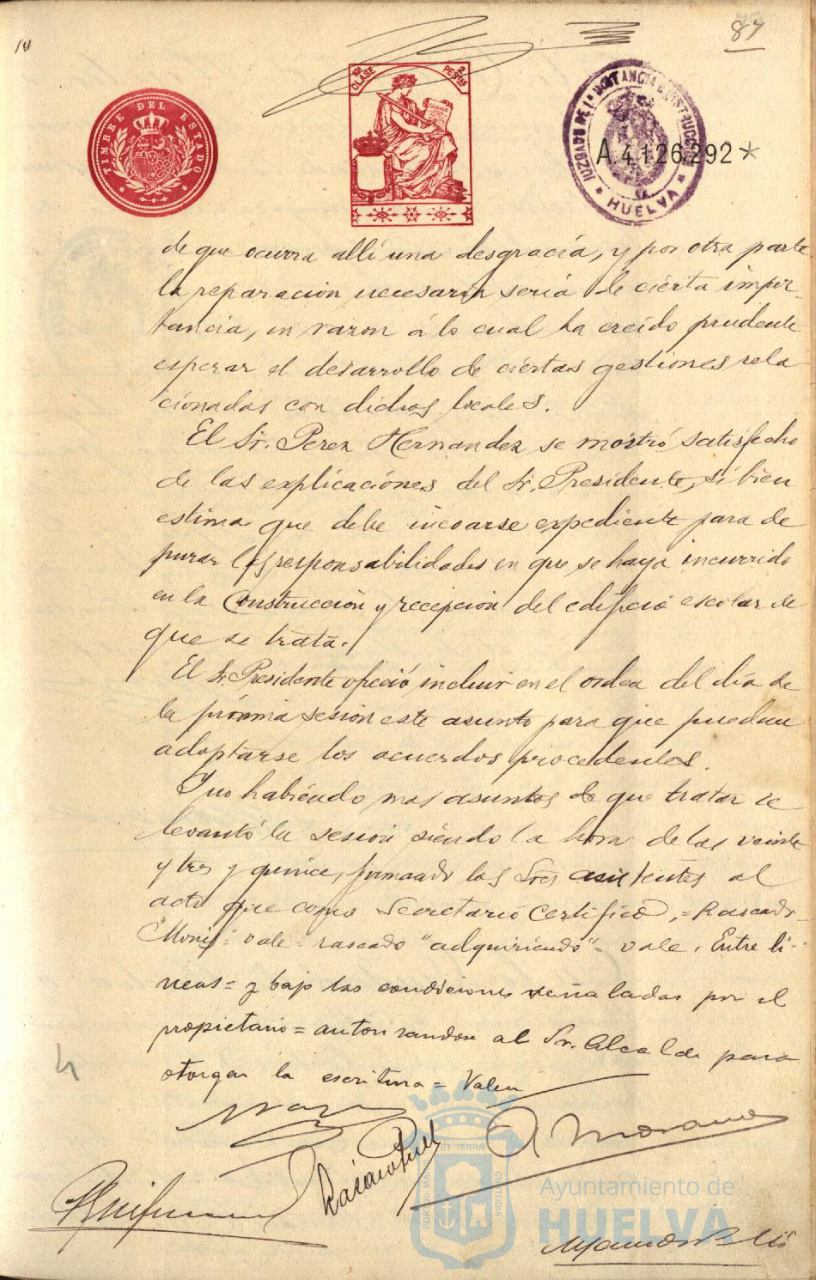 87
TIMBRE DEL ESTADO
10ª CLASE
2 PESETAS
JUZGADO DE 1ª INSTANCIA E INSTRUCCION
HUELVA
A4126292*
de que ocurra allí una desgracia, y por otra parte
la reparación necesaria seria de cierta impor-
tancia, en razon á lo cual ha creido prudente
esperar el desarrollo de ciertas gestiones rela
cionadas con dichos locales.
El Sr. Perez Hernandez se mostró satisfecho
de las explicaciones del Sr. Presidente, si bien
estima que debe incoarse expediente para de
purar las responsabilidades en que se haya incurrido
en la Construcción y recepcion del edificio escolar de
que se trata.
El Sr. Presidente ofreció incluir en el orden del dia de
la próxima sesión este asunto para que puedan
adoptarse los acuerdos procedentes.
Y no habiendo mas asuntos de que tratar se
levantó la sesión siendo la hora de las veinte
y tres y quince, firmando los Sres asistentes al
acto que como Secretario Certifico, = Rascado
vale = rascado "adquiriendo" = vale. Entre li-
neas = y bajo las condiciones señaladas por el
propietario = autorizandose al Sr. Alcalde para
otorgar la escritura = Valen
PORTUS MARIS ET TERRÆ CUSTODIA
Ayuntamiento de
HUELVA